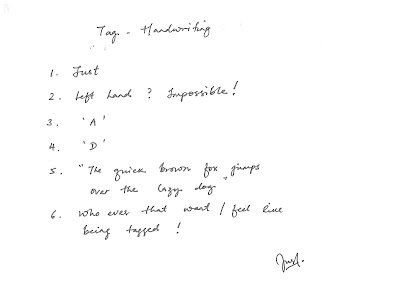 Tag - Handwriting
1. Just
2. Left hand ? Impossible !
3. 'A'
4. 'D'
5. "The quick brown fox jumps
over the lazy dog"
6. who ever that want / feel like
being tagged !